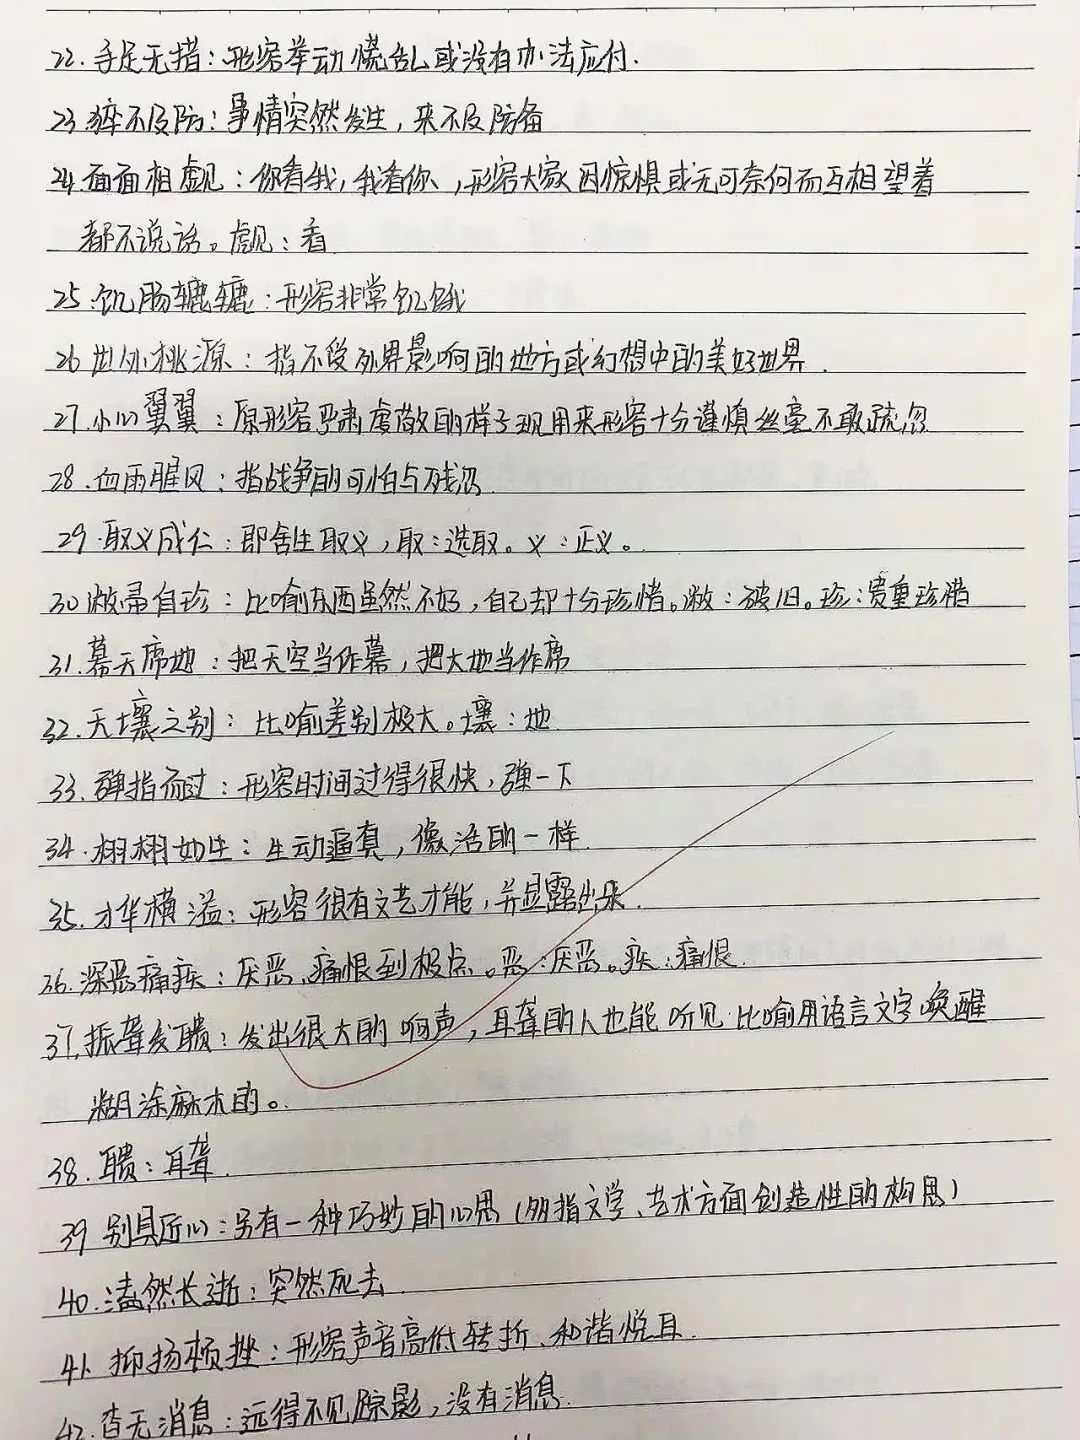 22.手足无措:形容举动慌乱或没有办法应付.
23.猝不及防:事情突然发生,来不及防备
24.面面相觑:你看我,我看你、,形容大家因惊惧或无可奈何而互相望着
都不说话。觑:看
25.饥肠辘辘:形容非常饥饿
26世外桃源:指不受外界影响的地方或幻想中的美好世界.
27.小心翼翼:原形容严肃虔敬的样子现用来形容十分谨慎丝毫不敢疏忽
28.血雨腥风:指战争的可怕与残忍.
29.取义成仁:即舍生取义,取:选取。义:正义。
30敝帚自珍:比喻东西虽然不好,自己却十分珍惜。敝:破旧。珍:贵重珍惜
31.幕天席地:把天空当作幕,把大地当作席
32.天壤之别:比喻差别极大。壤:地.
33.弹指而过:形容时间过得很快,弹一下
34.栩栩如生:生动逼真,像活的一样.
35.才华横溢:形容很有文艺才能,并显露出来.
36.深恶痛疾:厌恶、痛恨到极点。恶:厌恶。疾:痛恨.
37.振聋发聩:发出很大的响声,耳聋的人也能听见.比喻用语言文字唤醒
糊涂麻木的。
38.聩:耳聋.
39别具匠心:另有一种巧妙的心思(多指文学、艺术方面创造性的构思)
40.溘然长逝:突然死去.
41.抑扬顿挫:形容声音高低转折、和谐悦耳.
42.杳无消息:远得不见踪影,没有消息.